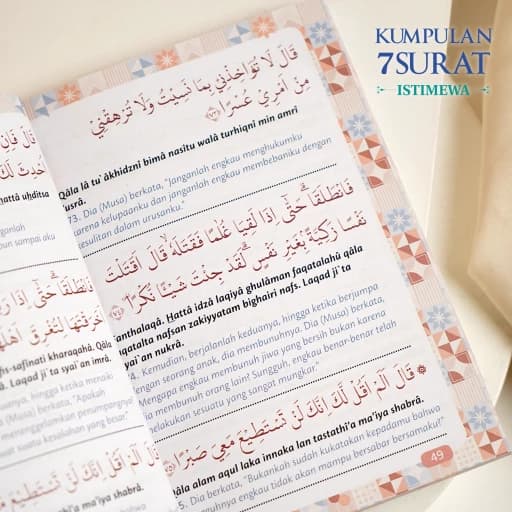 KUMPULAN
7SURAT
ISTIMEWA
hattâ uḥditsa
anlah
pun sampai aku
fis-safînati kharaqahâ. Qâla
â. Laqad ji`ta syai`an imrâ.
hingga ketika menaiki
(Musa) berkata, "Apakah
menenggelamkan penumpangnya
uat suatu kesalahan yang besar."
a ma'iya shabrâ.
قَالَ لَا تُؤَاخِذْنِيْ بِمَا نَسِيْتُ وَلَا تُرْهِقْنِيْ
مِنْ اَمْرِيْ عُسْرًا ٧٣
Qâla lâ tu`âkhidznî bimâ nasîtu walâ turhiqnî min amrî
'usrâ.
73. Dia (Musa) berkata, "Janganlah engkau menghukumku
karena kelupaanku dan janganlah engkau membebaniku dengan
kesulitan dalam urusanku."
فَانْطَلَقَا حَتّٰٓى اِذَا لَقِيَا غُلٰمًا فَقَتَلَهٗ قَالَ اَقَتَلْتَ
نَفْسًا زَكِيَّةً بِغَيْرِ نَفْسٍ لَقَدْ جِئْتَ شَيْـًٔا نُّكْرًا ٧٤
anthalaqâ. Ḥattâ idzâ laqiyâ ghulâman faqatalahû qâla
aqatalta nafsan zakiyyatam bighairi nafs. Laqad ji`ta
syai`an nukrâ.
4. Kemudian, berjalanlah keduanya, hingga ketika berjumpa
dengan seorang anak, dia membunuhnya. Dia (Musa) berkata,
"Mengapa engkau membunuh jiwa yang bersih bukan karena
dia membunuh orang lain? Sungguh, engkau benar-benar telah
melakukan sesuatu yang sangat mungkar."
قَالَ اَلَمْ اَقُلْ لَّكَ اِنَّكَ لَنْ تَسْتَطِيْعَ مَعِيَ صَبْرًا ٧٥
Qâla alam aqul laka innaka lan tastathî'a ma'iya shabrâ.
5. Dia berkata, "Bukankah sudah kukatakan kepadamu bahwa
engkau tidak akan mampu bersabar bersamaku?"
49